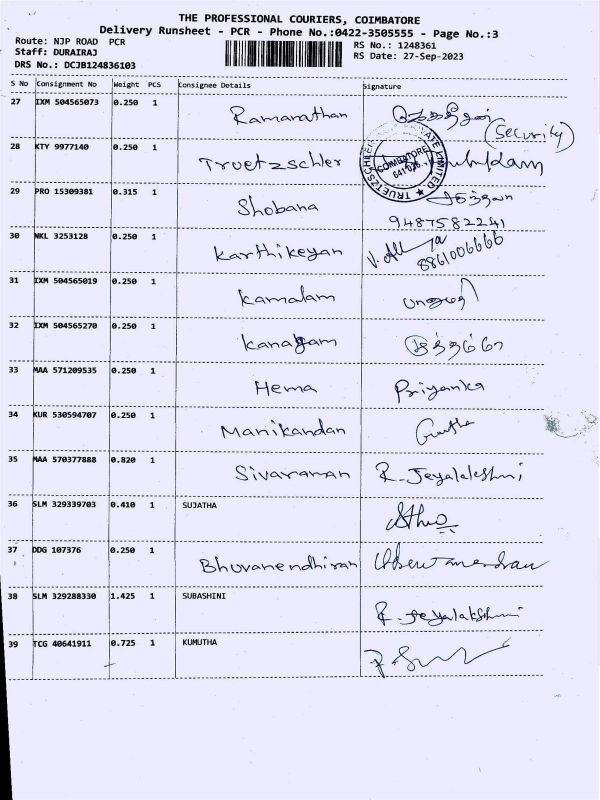 THE PROFESSIONAL COURIERS, COIMBATORE
Delivery Runsheet - PCR - Phone No.:0422-3505555 - Page No.:3
Route: NJP ROAD PCR
Staff: DURAIRAJ
DRS No.: DCJB124836103
RS No.: 1248361
RS Date: 27-Sep-2023
S No Consignment No Weight PCS Consignee Details Signature
27 IXM 504565073 0.250 1 Ramanathan
(Security)
28 KTY 9977140 0.250 1 Truetzschler
COIMBATORE
641 026.
29 PRO 15309381 0.315 1 Shobana
9487582241
30 NKL 3253128 0.250 1 Karthikeyan
8861006666
31 IXM 504565019 0.250 1 Kamalam
32 IXM 504565270 0.250 1 Kanagam
33 MAA 571209535 0.250 1 Hema Priyanka
34 KUR 530594707 0.250 1 Manikandan
35 MAA 570377888 0.820 1 Sivaraman R. Jeyalakshmi
36 SLM 329339703 0.410 1 SUJATHA
37 DDG 107376 0.250 1 Bhuvanendhiran
38 SLM 329288330 1.425 1 SUBASHINI R. Jeyalakshmi
39 TCG 40641911 0.725 1 KUMUTHA